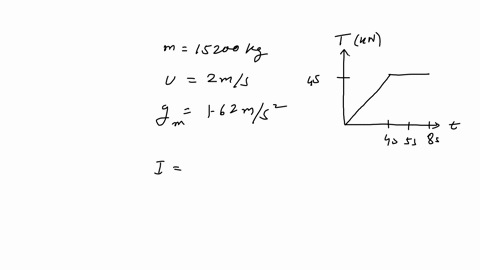 m = 15200 kg
U = 2 m/s
g_m = 1.62 m/s²
I =
T (kN)
45
4s 5s 8s t